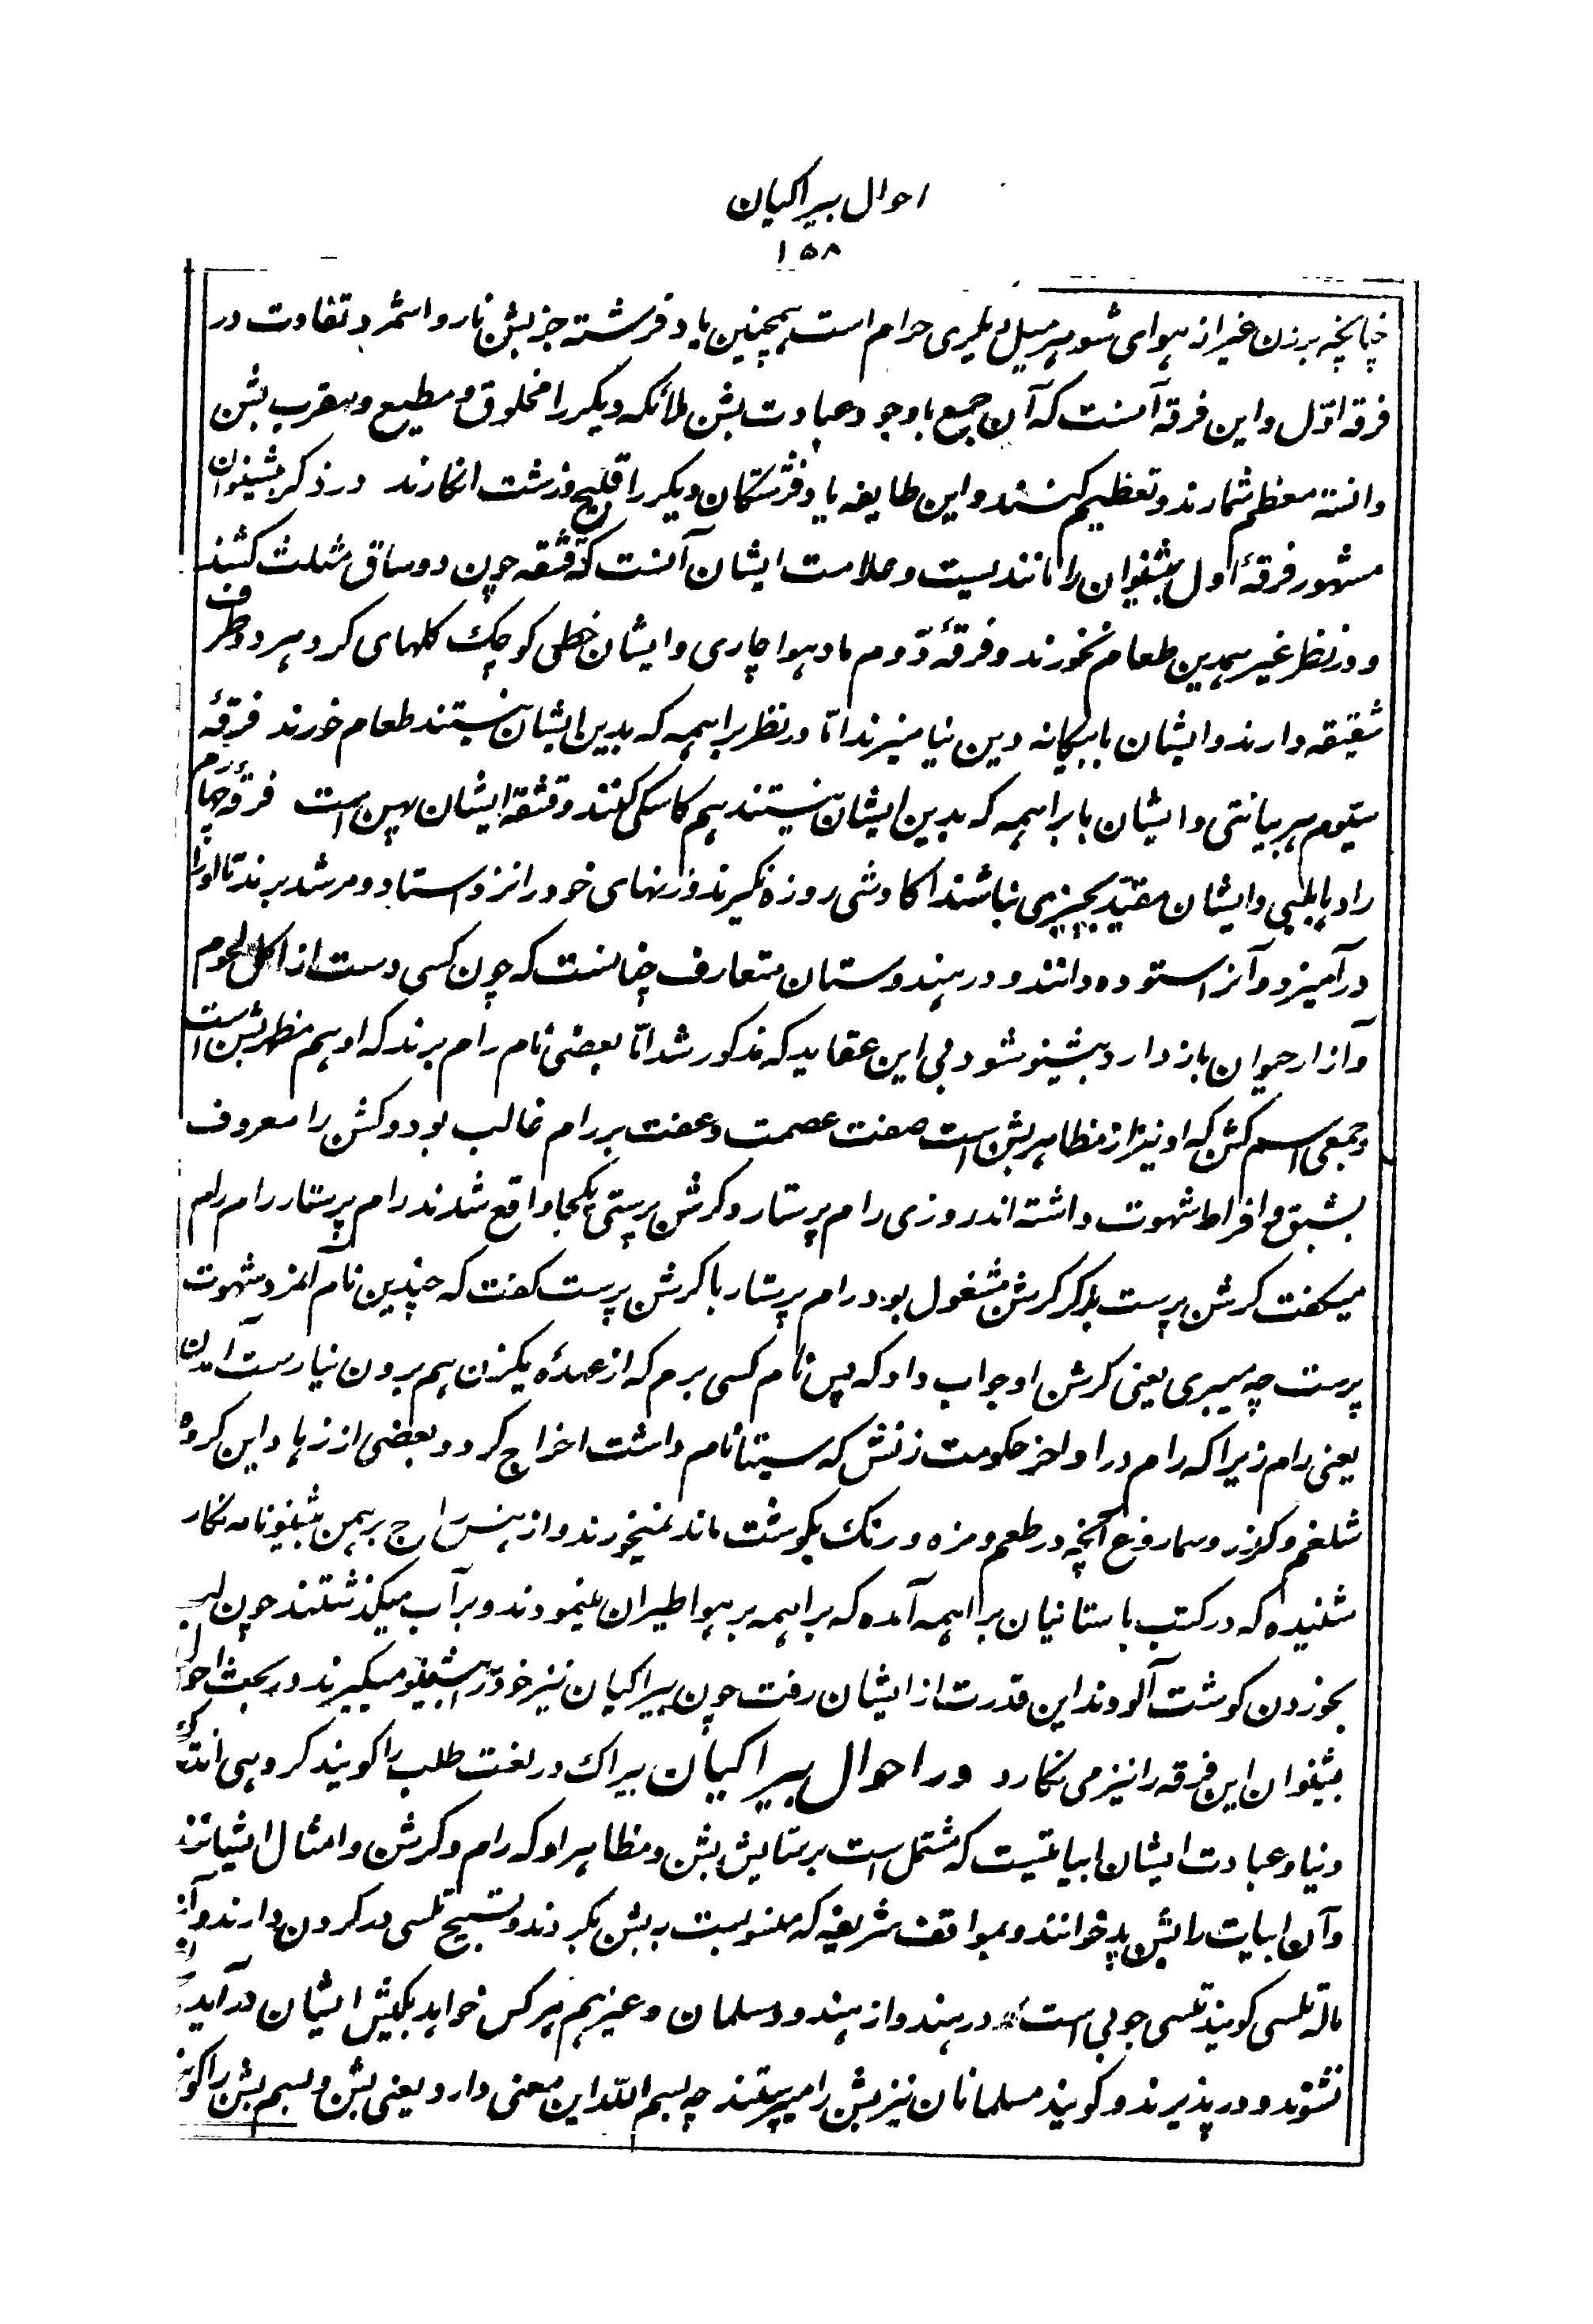 احوال بیراکیان
۱۵۸
چنانچه بر زن غیر از هوای شوهر میل دیگری حرام است همچنین یاد فرشته جز بشن ناروا شمرد تفاوت در
فرقه اوّل و این فرقه آنست که آن جمع با وجود عبادت بشن ملائکه دیگر را مخلوق و مطیع و مقرب بشن
دانسته معظم شمارند و تعظیم کنند و این طایفه یاد فرشتگان دیگر را قبیح و زشت انکارند در ذکر بشینوان
مشهور فرقهٔ اول بشینوان را مانند یست و علامت ایشان آنست که قشقه چون دو ساق مثلث کشند
و در نظر غیر همدین طعام نخورند و فرقهٔ دّوم مادهوا چاری و ایشان خطی کوچک کلهای کرد بهر دو طرف
شقیقه دارند و ایشان با بیکانه دین نیامیزند امّا در نظر براهمه که بدین ایشان نیستند طعام خورند فرقهٔ
سیّوم هربیانتی و ایشان با براهمه که بدین ایشان نیستند هم کاسکی کنند و قشقهٔ ایشان همین است فرقهٔ چهارم
رادها بلبی و ایشان مقیّد بچیزی نباشند اکادشی روزه نکیرند و زنهای خود را نزد استاد و مرشد برند تا او را
درآمیزد و آنرا ستوده دانند و در هندوستان متعارف چنانست که چون کسی دست از اکل لحوم
و آزار حیوان باز دارد بشینو شود بی این عقاید که مذکور شد امّا بعضی نام رام برند که او هم مظهر بشن است
و جمعی اسم کشن که او نیز از مظاهر بشن است صفت عصمت و عفت بر رام غالب بود و کشن را معروف
بشبق و افراط شهوت داشته اند روزی رام پرستار و کرشن پرستی یکجا واقع شدند رام پرستار رام رام
میکفت کرشن پرست بذکر کرشن مشغول بود رام پرستار با کرشن پرست کفت که چندین نام آنمرد شهوت
پرست چه میبری یعنی کرشن او جواب داد که پس نام کسی برم که از عهدهٔ یکزن هم برون نیارست آمدن
یعنی رام زیرا که رام در اواخر حکومت زنش که سیتا نام داشت اخراج کرد و بعضی از زهاد این کروه
شلغم و کزر و سماروغ آنچه در طعم و مزه و رنک بکوشت ماند نمیخورند و از هنس راج برهمن بشینو نامه نکار
شنیده که در کتب باستانیان براهمه آمده که براهمه بر هوا طیران مینمودند و بر آب میکذشتند چون لب
بخوردن کوشت آلودند این قدرت از ایشان رفت چون بیراکیان نیز خود را بشینو میکیرند در بحث احوال
بشینوان این فرقه را نیز می نکارد در احوال بیراکیان بیراک در لغت طلب را کویند کروهی اند
دنیا و عبادت ایشان ابیاتیست که مشتمل است بر ستایش بشن و مظاهر او که رام و کرشن و امثال ایشانند
و آن ابیات را بشن پد خوانند و بمواقف شریفه که منسوبست به بشن بکردند و تسبیح تلسی در کردن دارند و آنرا
مالهٔ تلسی کویند تلسی چوبی است در هند و از هندو و مسلمان و غیرهم هر کس خواهد بکیش ایشان درآید
نشوند و در پذیرند و کویند مسلمانان نیز بشن را میپرستند چه بسم الله این معنی دارد یعنی بشن و بسم بشن را